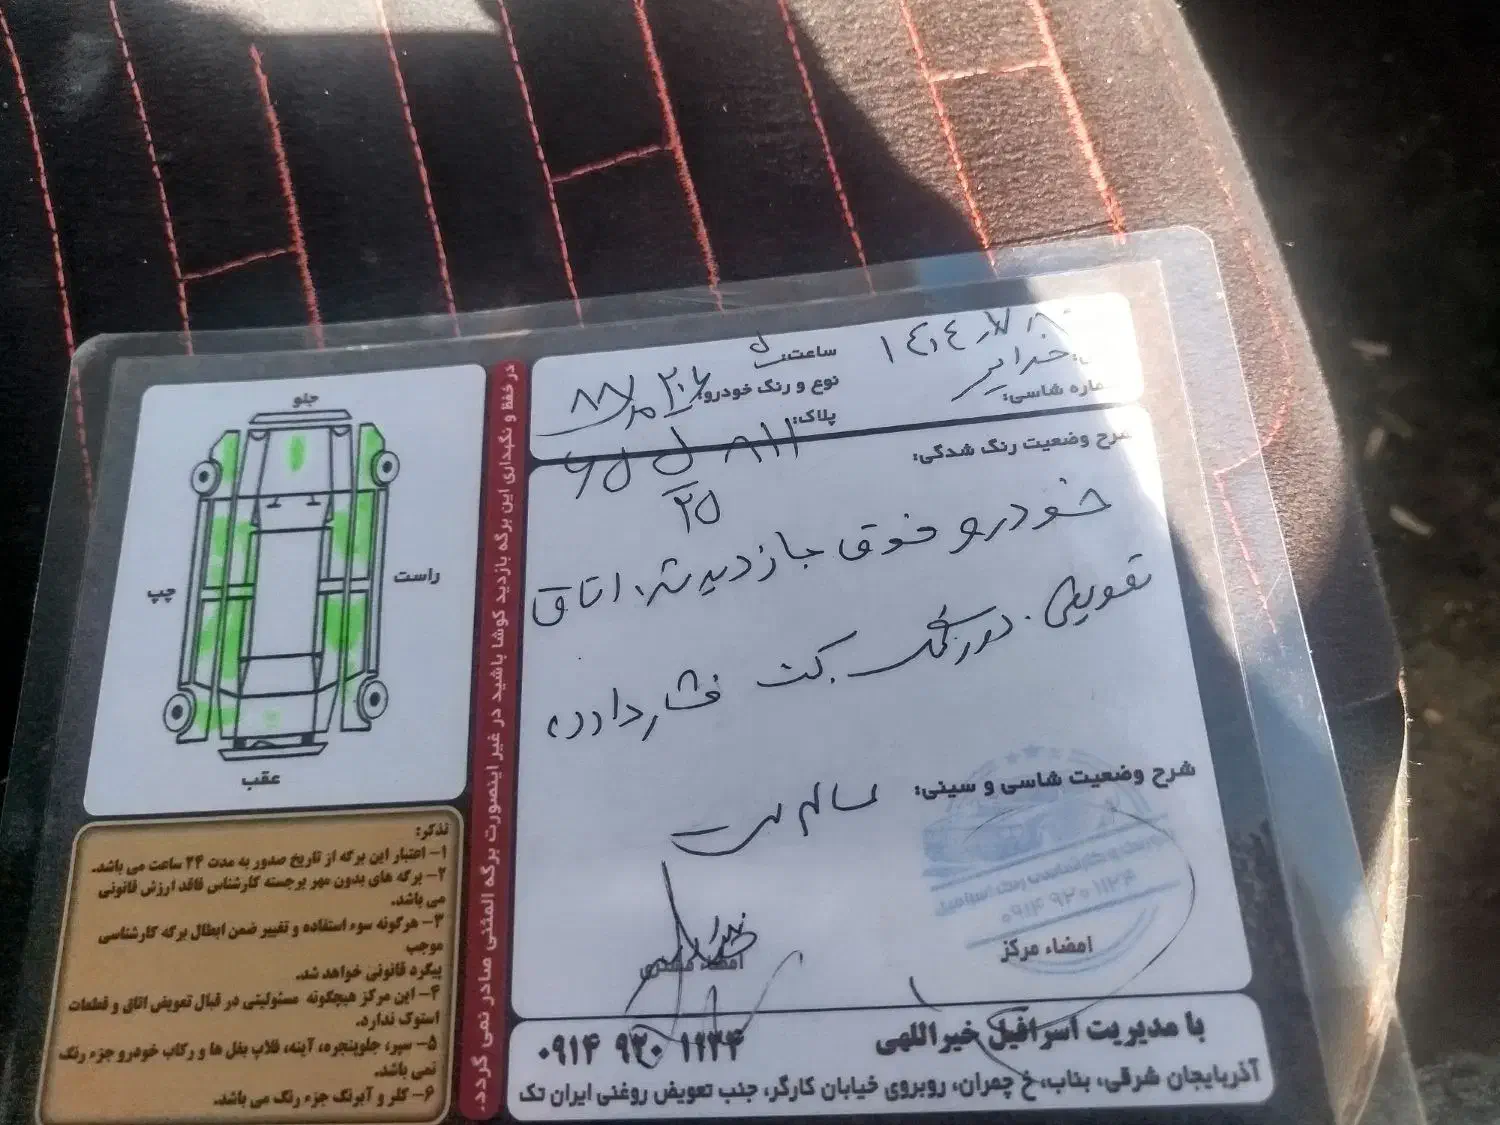 ساعت:
۱۴۰۴
نوع و رنگ خودرو: ۲۰۶ مدل ۸۸
ماره شاسی:
پلاک:
۸۱۱
۲۵
شرح وضعیت رنگ شدگی:
خودرو فوق بازدید شد. اتاق
تعویض. دور رنگ
شرح وضعیت شاسی و سینی: سالم است
امضاء مرکز
امضاء مشتری
۰۹۱۴ ۹۲۰ ۱۱۲۴
با مدیریت اسرافیل خیراللهی
۰۹۱۴ ۹۲۰ ۱۱۲۴
آذربایجان شرقی، بناب، خ چمران، روبروی خیابان کارگر، جنب تعویض روغنی ایران تک
در حفظ و نگهداری این برگه بازدید کوشا باشید در غیر اینصورت برگه المثنی صادر نمی گردد.
جلو
راست
چپ
عقب
تذکر:
۱- اعتبار این برگه از تاریخ صدور به مدت ۲۴ ساعت می باشد.
۲- برگه های بدون مهر برجسته کارشناس فاقد ارزش قانونی
می باشد.
۳- هرگونه سوء استفاده و تغییر ضمن ابطال برگه کارشناسی
موجب
پیگرد قانونی خواهد شد.
۴- این مرکز هیچگونه مسئولیتی در قبال تعویض اتاق و قطعات
استوک ندارد.
۵- سپر، جلوپنجره، آینه، قلاب بغل ها و رکاب خودرو جزء رنگ
نمی باشد.
۶- کلر و آبرنگ جزء رنگ می باشد.